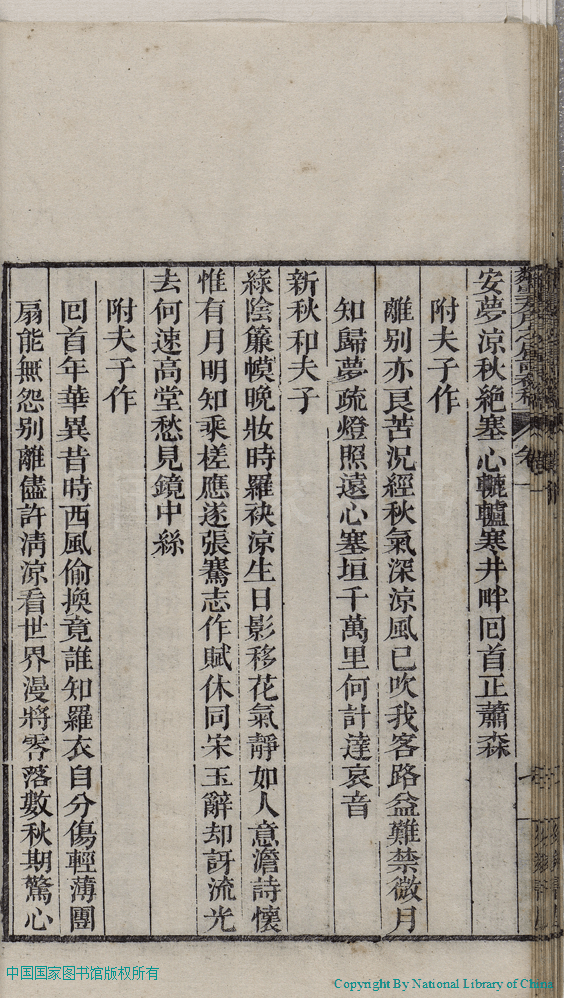 安夢涼秋絶塞心轆轤寒井畔回首正蕭森
附夫子作
離别亦良苦況經秋氣深涼風已吹我客路益難禁微月
知歸夢疏燈照遠心塞垣千萬里何計達哀音
新秋和夫子
綠陰簾幙晚妝時羅袂涼生日影移花氣靜如人意澹詩懷
惟有月明知乘槎應遂張騫志作賦休同宋玉辭却訝流光
去何速高堂愁見鏡中絲
附夫子作
回首年華異昔時西風偷換竟誰知羅衣自分傷輕薄團
扇能無怨别離儘許淸涼看世界漫將零落數秋期驚心
中国国家图书馆版权所有
Copyright By National Library of China